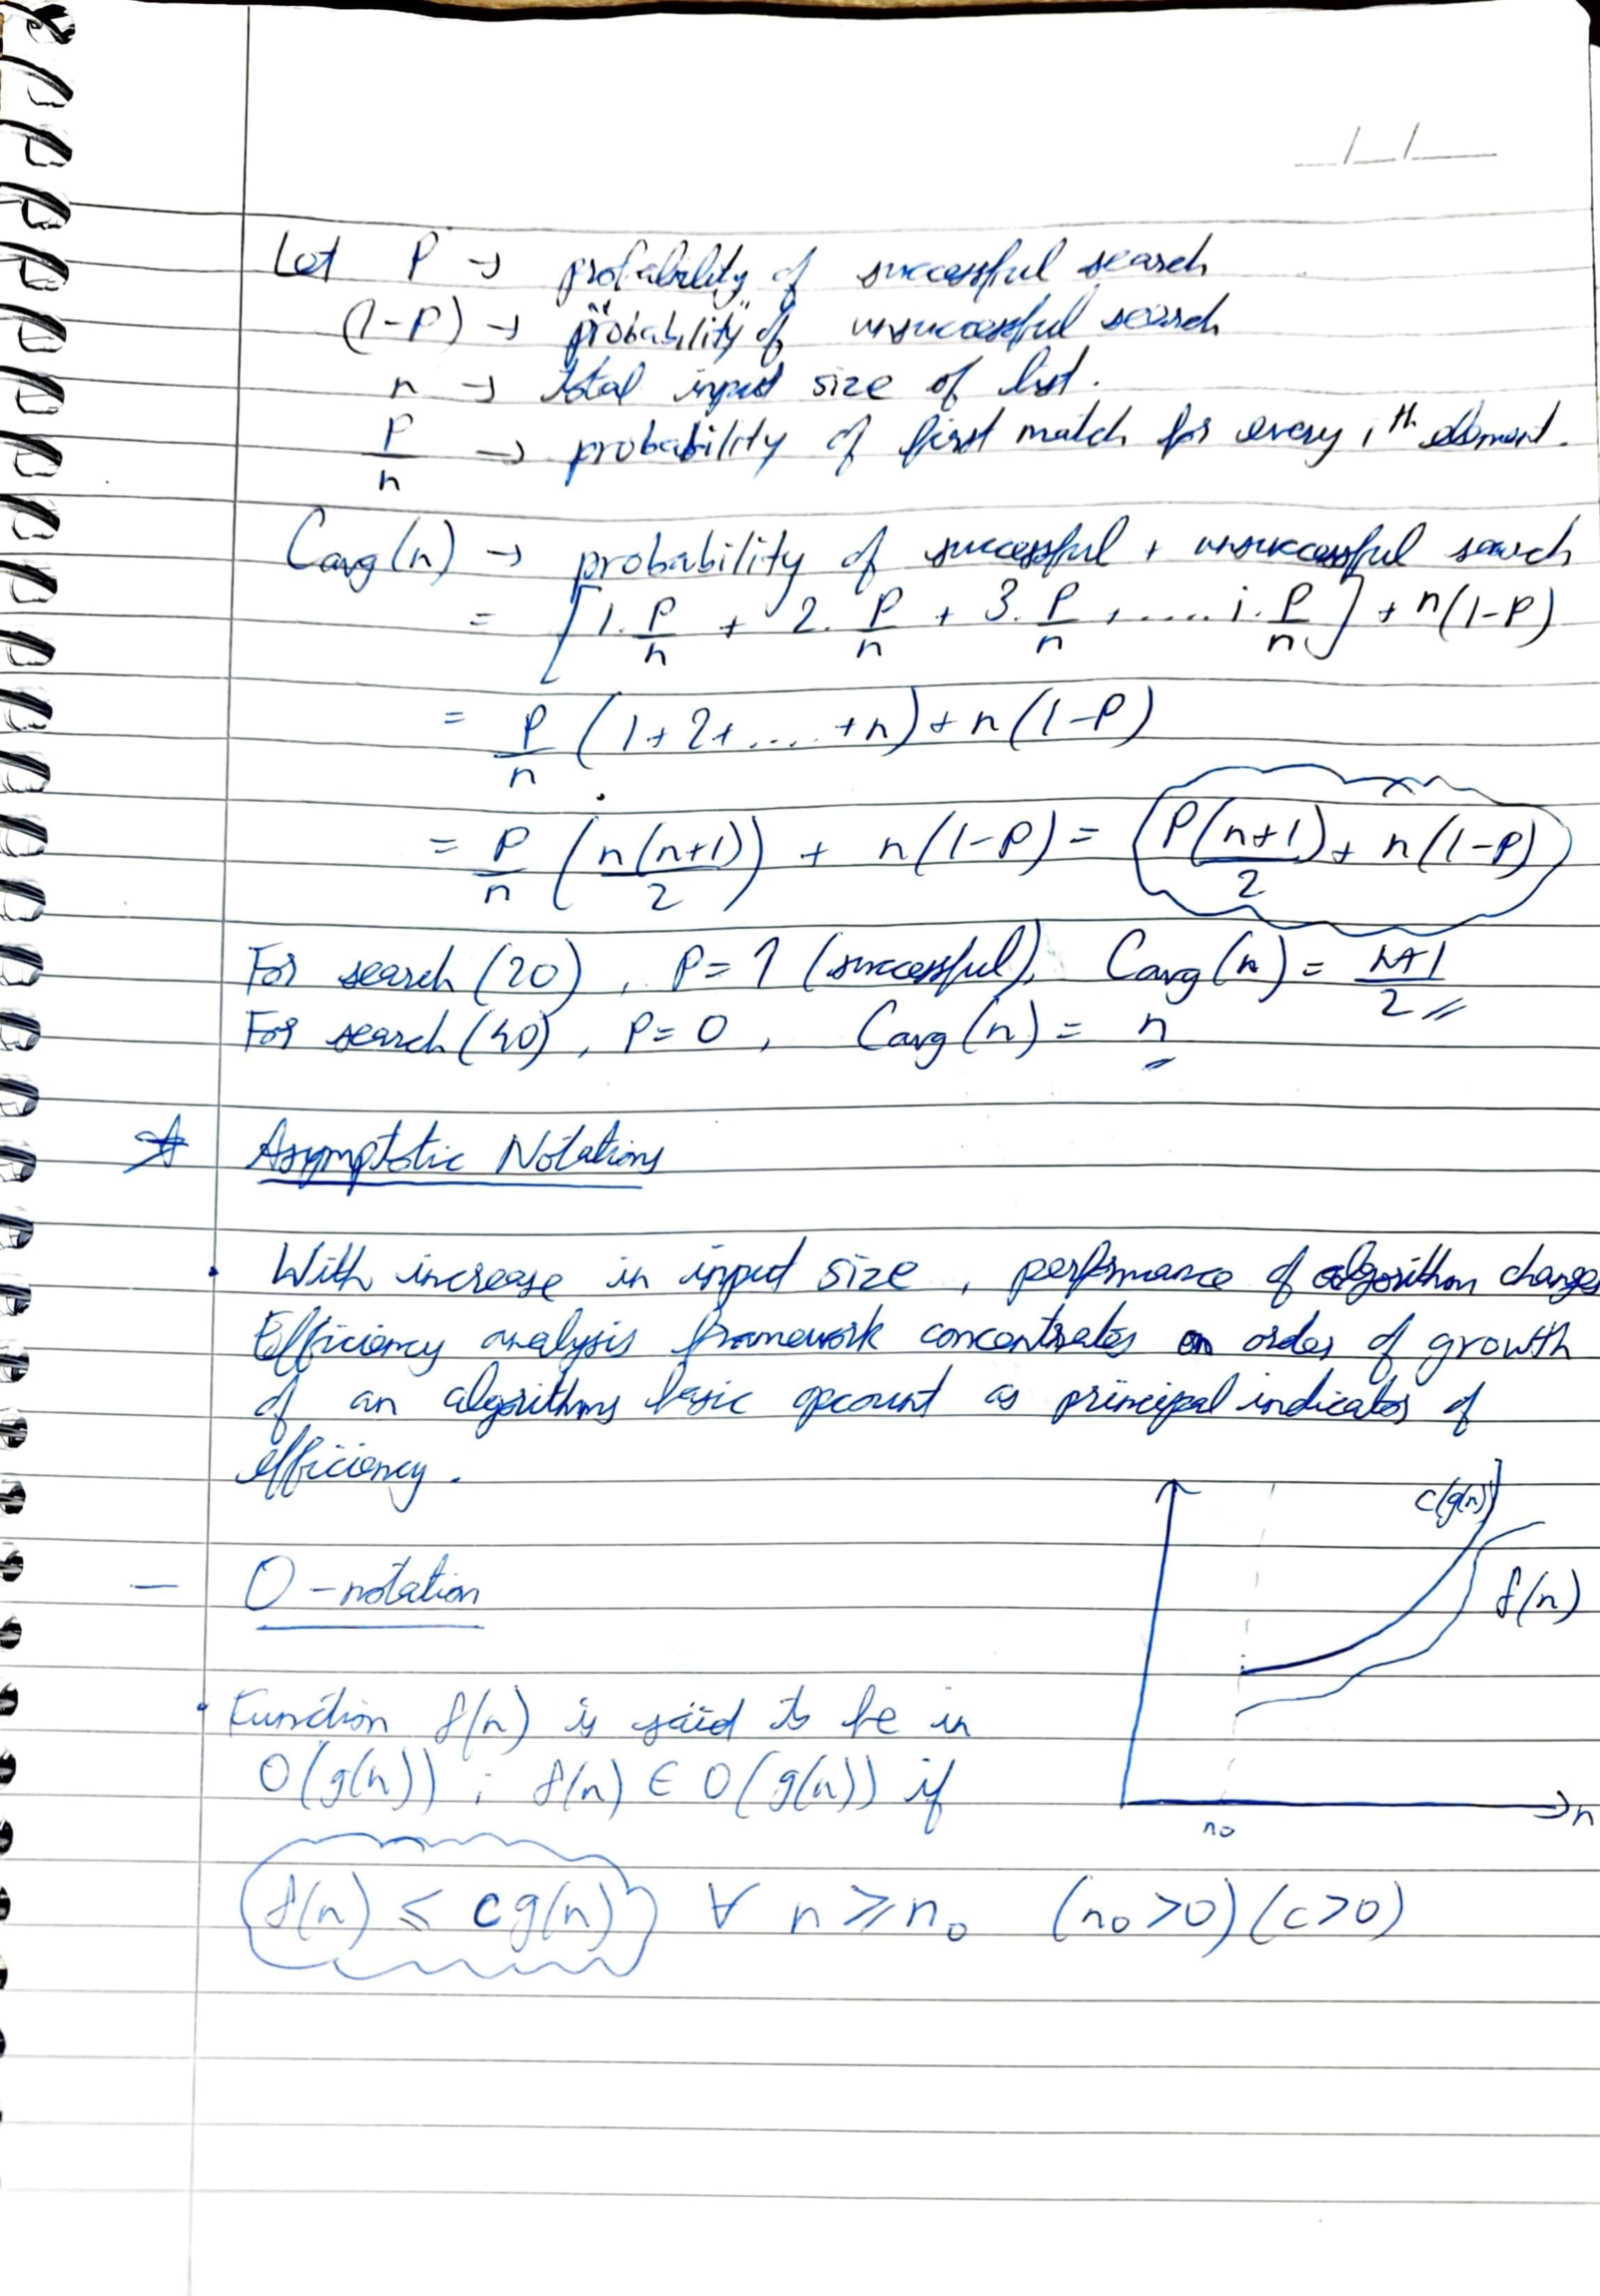 __/__/____
Let P → probability of successful search
(1-P) → probability of unsuccessful search
n → total input size of list.
P/n → probability of first match for every ith element.
Cavg(n) → probability of successful + unsuccessful search
= [1.P/n + 2.P/n + 3.P/n + ..... i.P/n] + n(1-P)
= P/n (1+2+.... +n) + n(1-P)
= P/n (n(n+1)/2) + n(1-P) = P(n+1)/2 + n(1-P)
For search(20), P=1 (successful), Cavg(n) = n+1/2
For search(40), P=0, Cavg(n) = n
Asymptotic Notations
. With increase in input size, performance of algorithm changes
Efficiency analysis framework concentrates on order of growth
of an algorithms basic opcount as principal indicator of
efficiency.
c(g(n))
f(n)
n
n₀
— O-notation
. Function f(n) is said to be in
O(g(n)) ; f(n) ∈ O(g(n)) if
f(n) ≤ cg(n) ∀ n ≥ n₀ (n₀>0) (c>0)